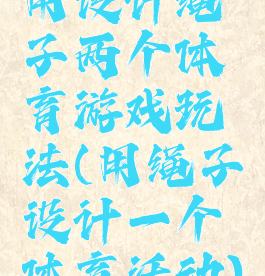 用设计绳
子两个体
育游戏玩
法(用绳子
设计一个
体育活动)